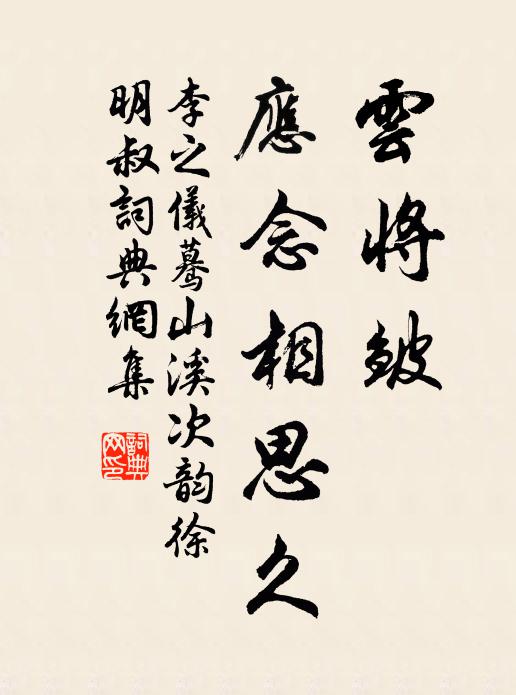 雲將皴
應念相思久
李之儀驀山溪次韵徐
明叔詞典網集
詞典
网印